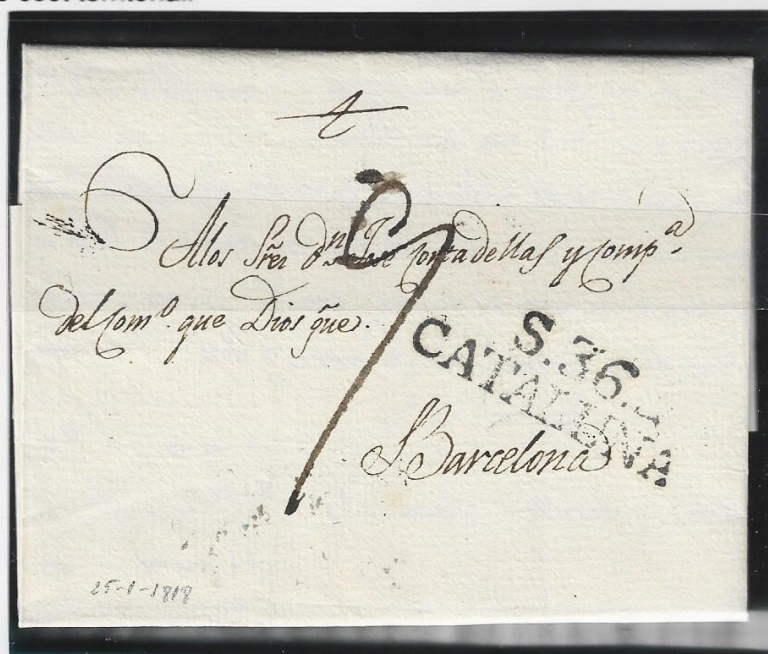 A los Sres Dn Jose Cortadellas y Compª.
del Comº. que Dios gue.
S.36.
CATALUÑA
Barcelona
25-1-1818